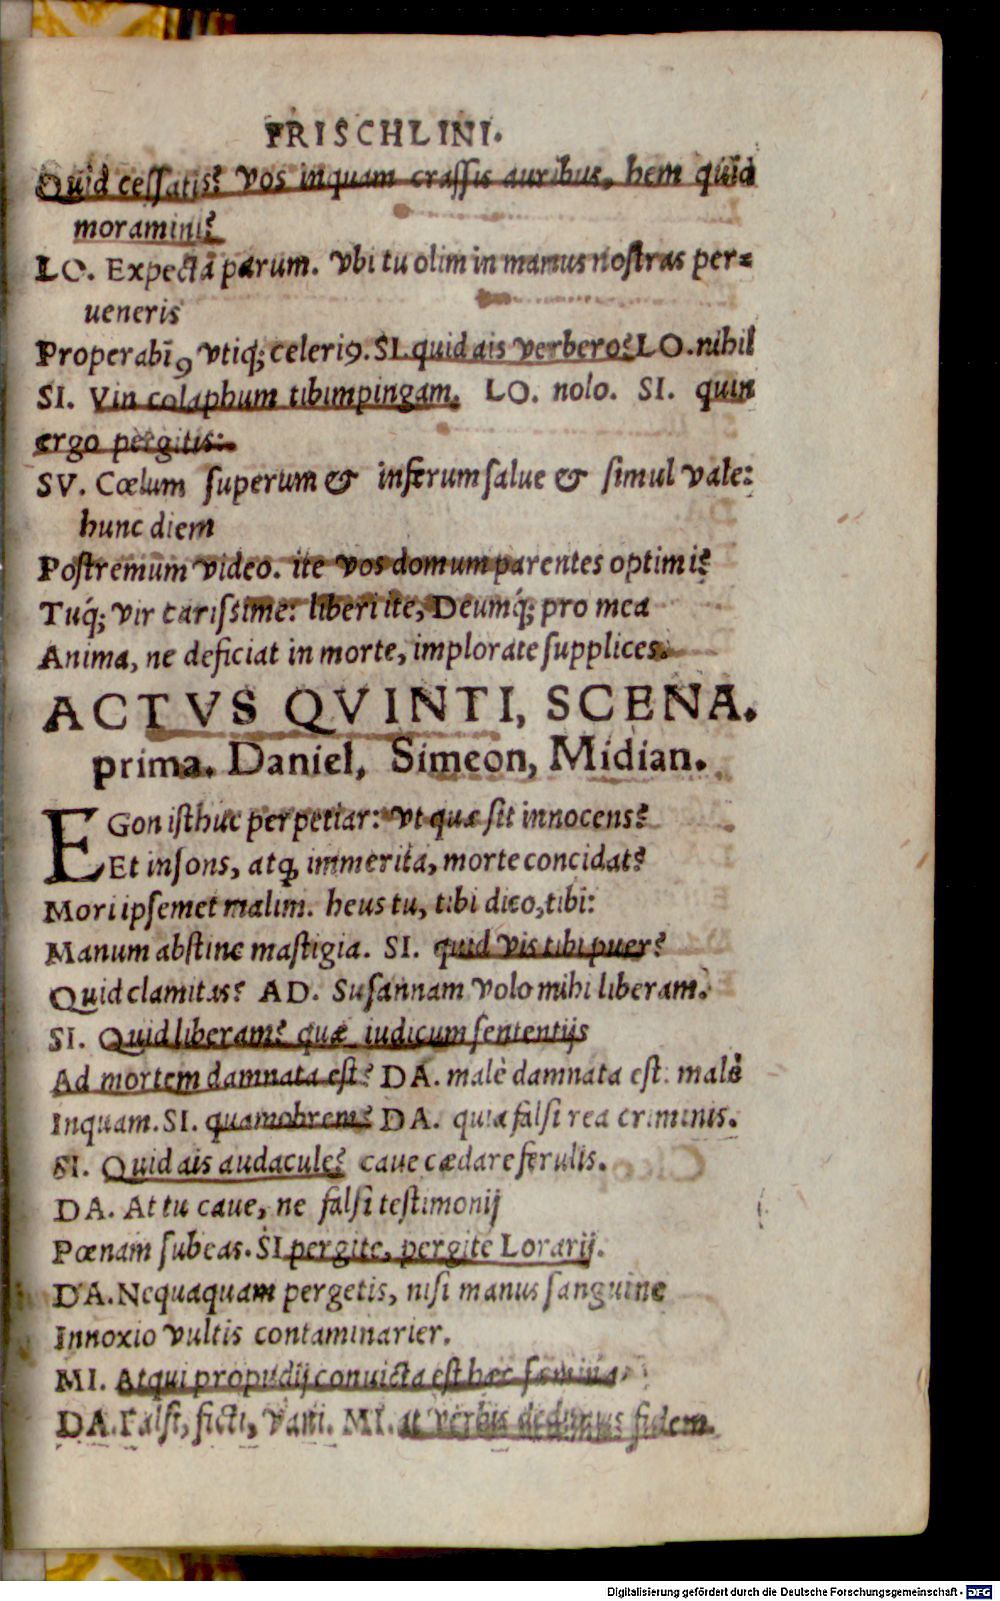 FRISCHLINI.
Quid cessatis? Vos inquam crassis auribus, hem quid
moramini?
LO. Expectā parum. Vbi tu olim in manus nostras per=
ueneris
Properabīꝰ vtiq; celeriꝰ. SI. quid ais verbero? LO. nihil
SI. Vin colaphum tibi impingam. LO. nolo. SI. quin
ergo pergitis:
SV. Cœlum superum & inferum salue & simul vale:
hunc diem
Postremùm video. ite vos domum parentes optimi?
Tuq́; vir carissime: liberi ite, Deumq́; pro mea
Anima, ne deficiat in morte, implorate supplices.
ACTVS QVINTI, SCENA.
prima. Daniel, Simeon, Midian.
EGon isthuc perpetiar: vt quæ sit innocens?
Et insons, atq, immerita, morte concidat?
Mori ipsemet malim. heus tu, tibi dico, tibi:
Manum abstine mastigia. SI. quid vis tibi puer?
Quid clamitas? AD. Susannam volo mihi liberam.
SI. Quid liberam? quæ iudicum sententijs
Ad mortem damnata est? DA. malè damnata est. malè
Inquam. SI. quamobrem? DA. quia falsi rea criminis.
SI. Quid ais audacule? caue cædare ferulis.
DA. At tu caue, ne falsi testimonij
Pœnam subeas. SI pergite, pergite Lorarij.
DA. Nequaquam pergetis, nisi manus sanguine
Innoxio vultis contaminarier.
MI. Atqui propudij conuicta est hæc fœmina.
DA. Falsi, ficti, vani. MI. at verbis dedimus fidem.
Digitalisierung gefördert durch die Deutsche Forschungsgemeinschaft - DFG